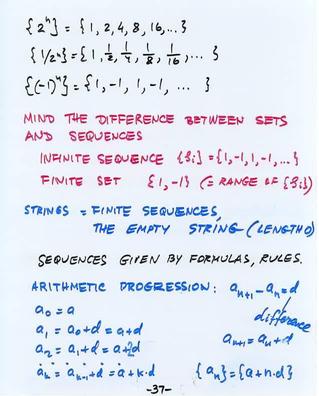 {2^n} = {1, 2, 4, 8, 16, ...}
{1/2^n} = {1, 1/2, 1/4, 1/8, 1/16, ...}
{(-1)^n} = {1, -1, 1, -1, ... }
MIND THE DIFFERENCE BETWEEN SETS
AND SEQUENCES
INFINITE SEQUENCE {si} = {1, -1, 1, -1, ...}
FINITE SET {1, -1} (= RANGE OF {si})
STRINGS = FINITE SEQUENCES,
THE EMPTY STRING (LENGTH 0)
SEQUENCES GIVEN BY FORMULAS, RULES.
ARITHMETIC PROGRESSION: a_{n+1} - a_n = d
difference
a_0 = a
a_1 = a_0 + d = a + d
a_{n+1} = a_n + d
a_2 = a_1 + d = a + 2d
a_k = a_{k-1} + d = a + k·d {a_n} = {a + n·d}
-37-